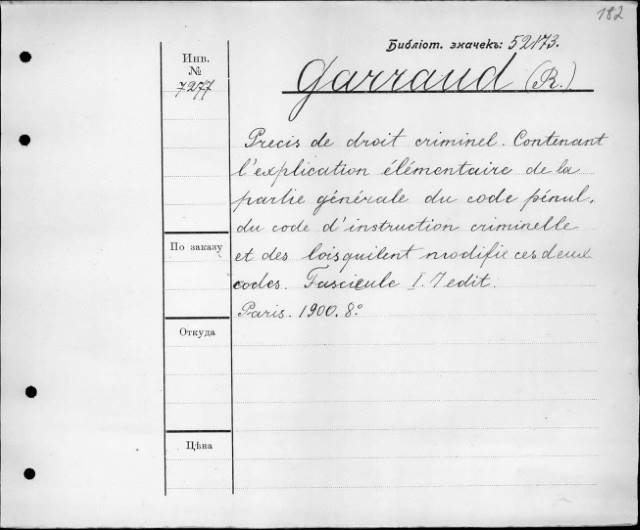 182
Библіот. значекъ: 52173.
Инв.
№
7277
Garraud (R.)
Precis de droit criminel. Contenant
l'explication élémentaire de la
partie générale du code pénal,
du code d'instruction criminelle
et des lois qui lent modifié ces deux
codes. Fascicule I. 7 edit.
Paris. 1900. 8º
По заказу
Откуда
Цѣна